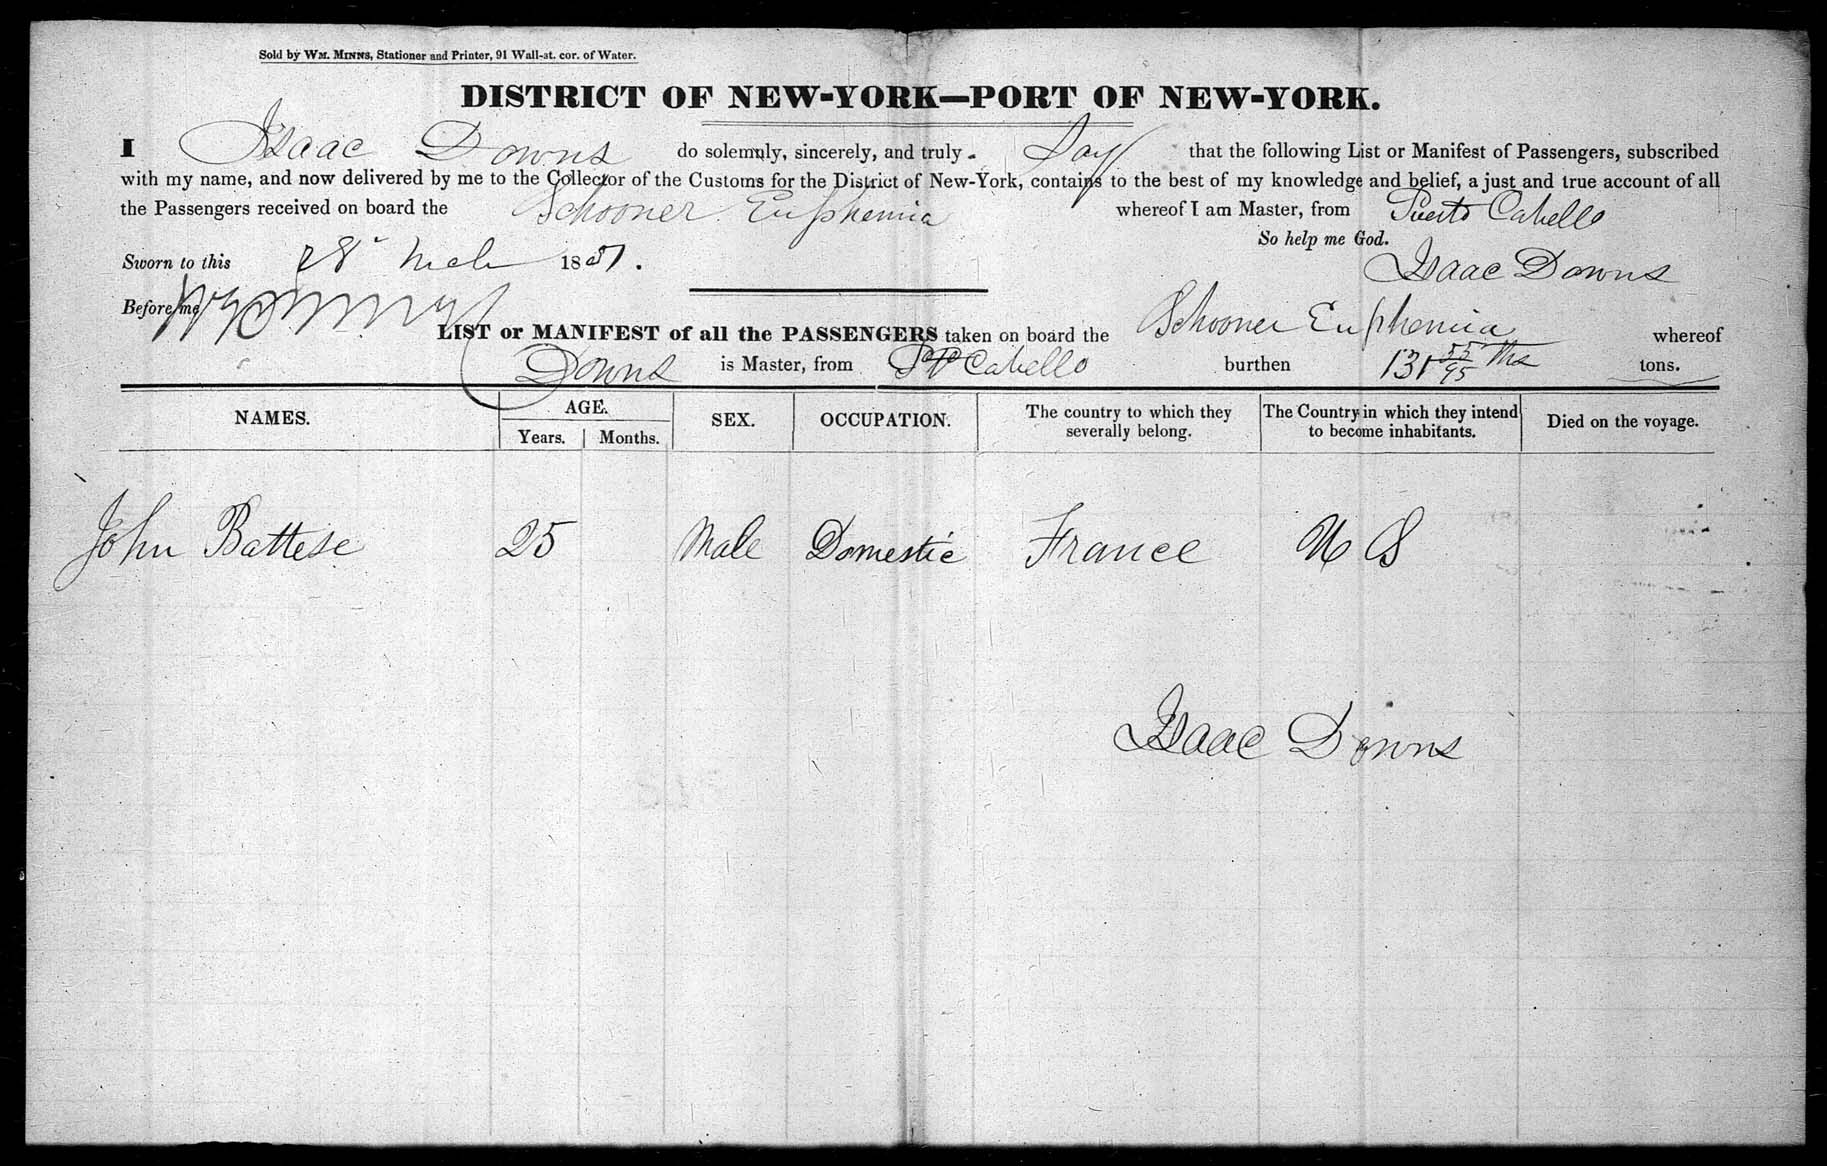 Sold by WM. MINNS, Stationer and Printer, 91 Wall-st. cor. of Water.
DISTRICT OF NEW-YORK—PORT OF NEW-YORK.
I Isaac Downs do solemnly, sincerely, and truly Say that the following List or Manifest of Passengers, subscribed
with my name, and now delivered by me to the Collector of the Customs for the District of New-York, contains to the best of my knowledge and belief, a just and true account of all
the Passengers received on board the Schooner Euphemia whereof I am Master, from Puerto Cabello
So help me God.
Sworn to this 28 Mch 1851. Isaac Downs
Before me
LIST or MANIFEST of all the PASSENGERS taken on board the Schooner Euphemia whereof
Downs is Master, from Pto Cabello burthen 131 55/95 ths tons.
NAMES. AGE. SEX. OCCUPATION. The country to which they severally belong. The Country in which they intend to become inhabitants. Died on the voyage.
Years. Months.
John Battese 25 Male Domestic France U S
Isaac Downs